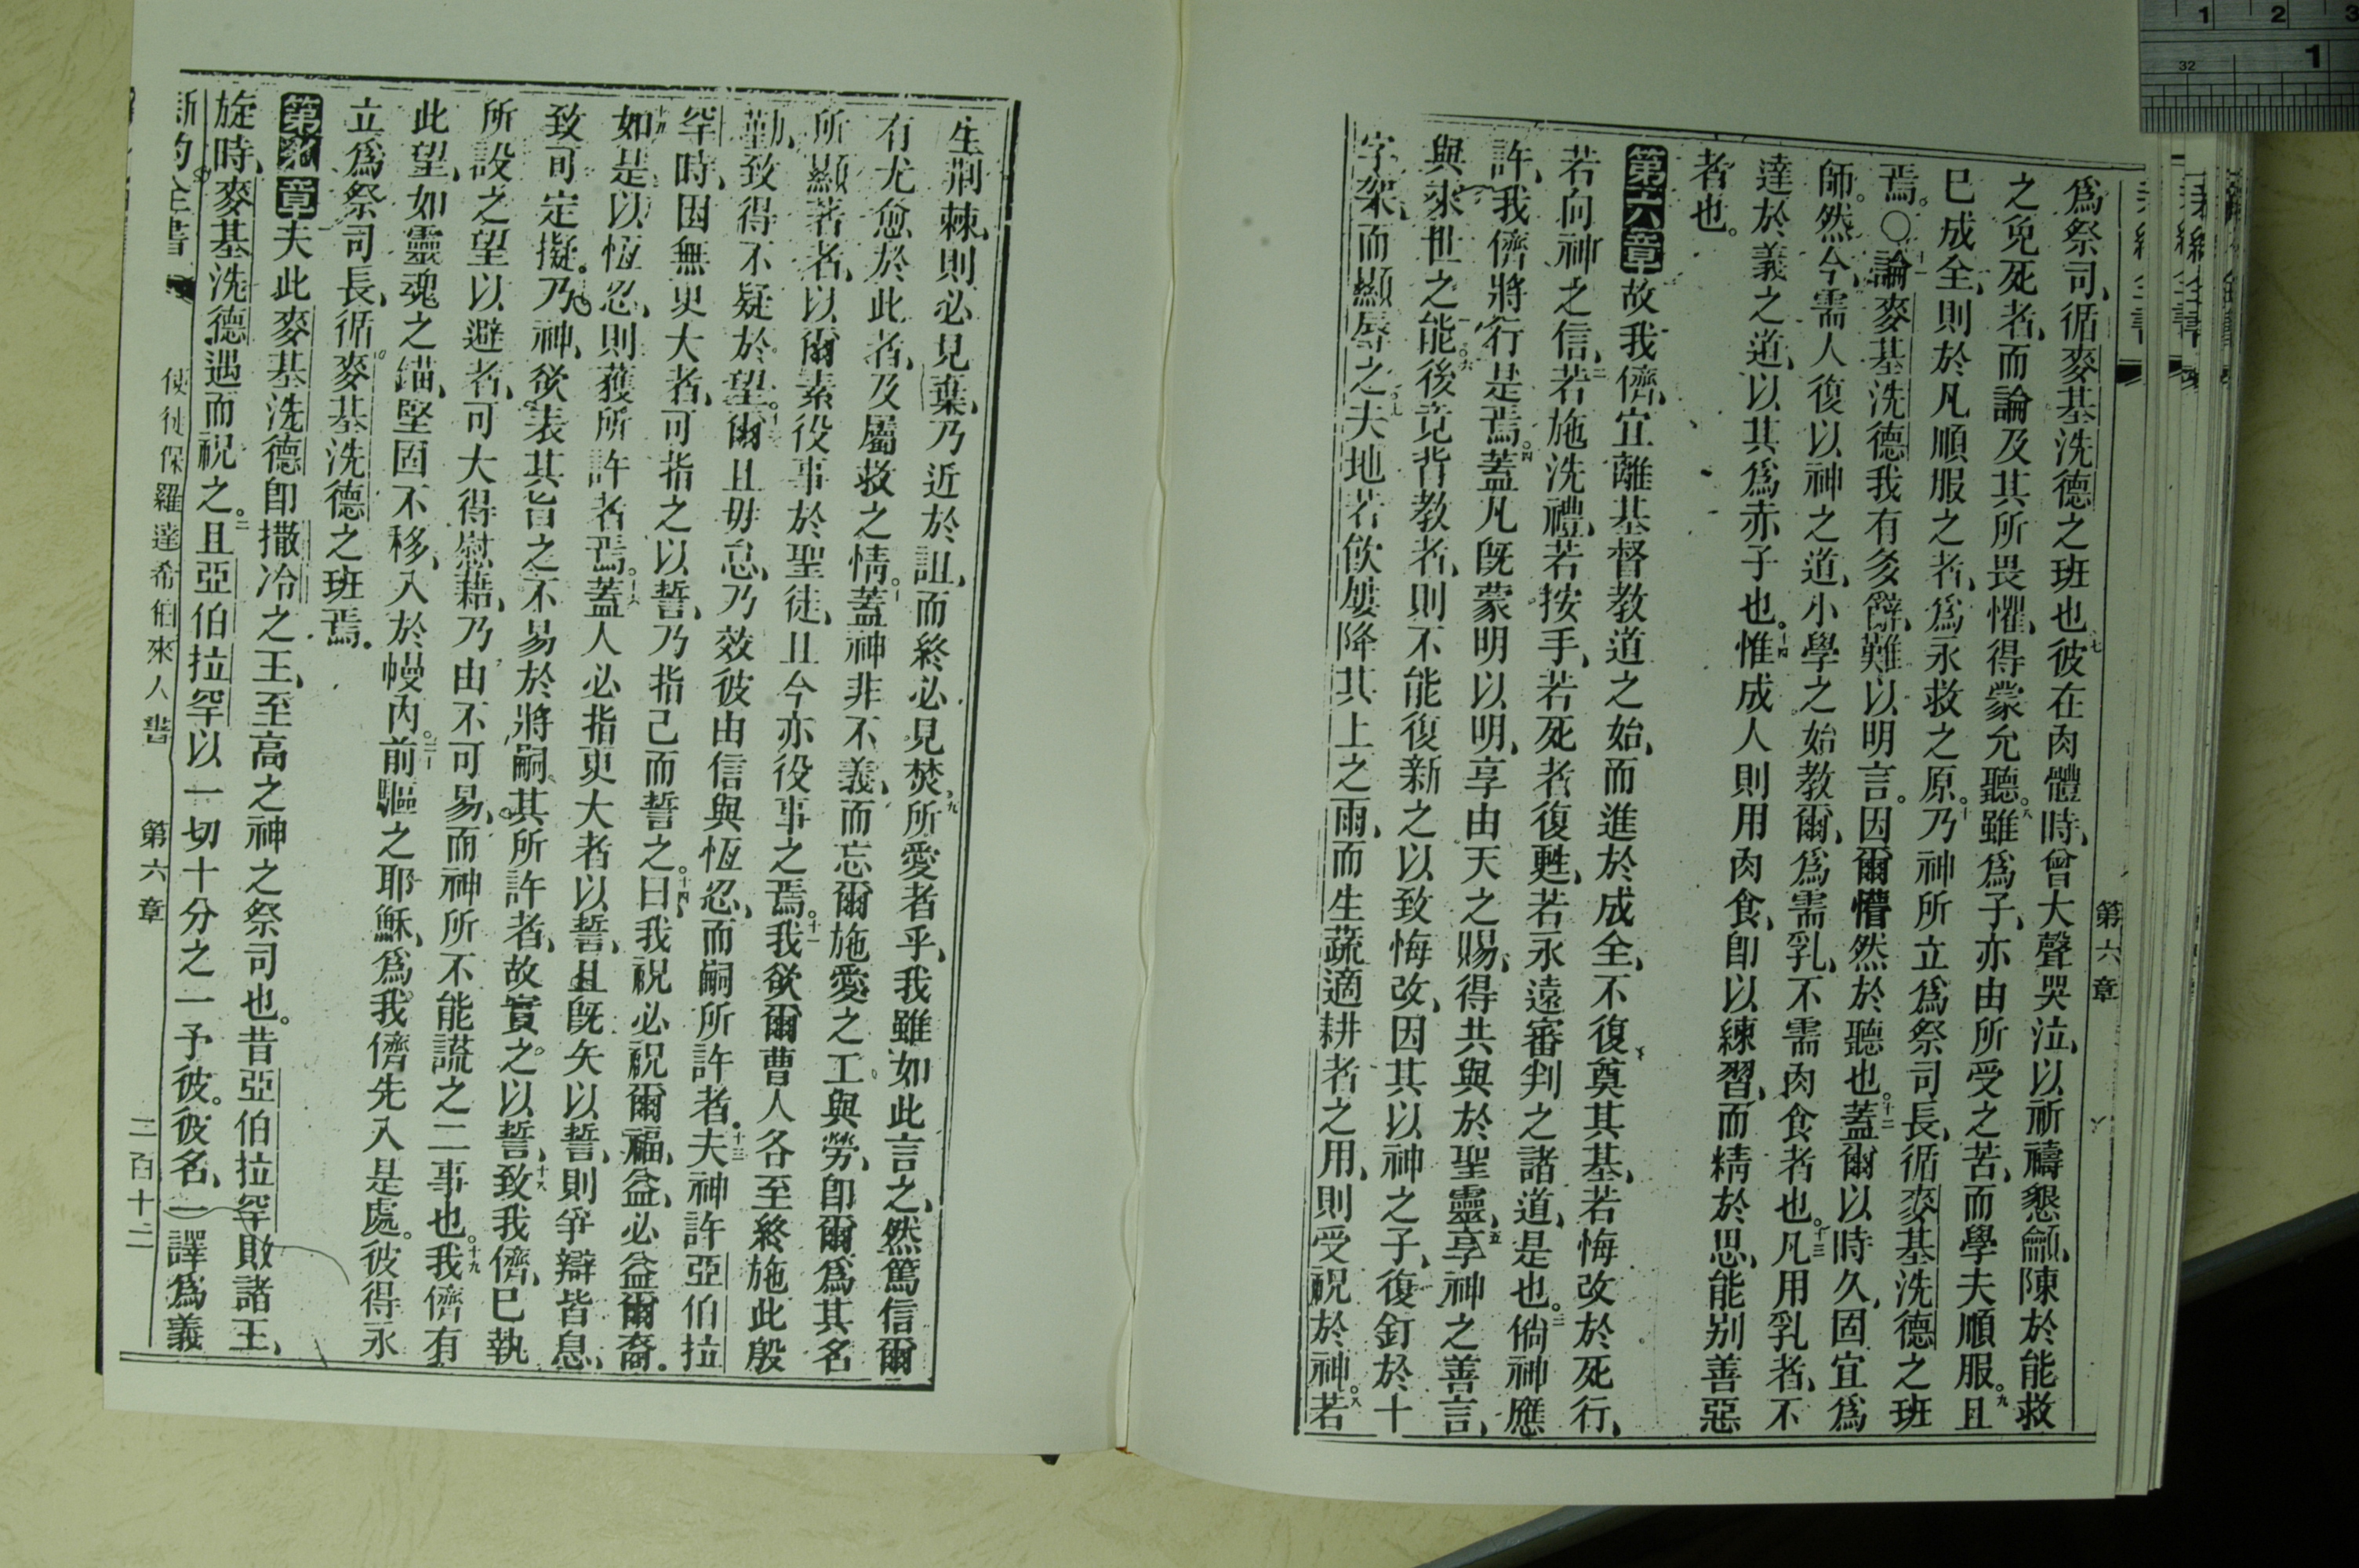 第六章
爲祭司、循麥基洗德之班也。七彼在肉體時、曾大聲哭泣、以祈禱懇龥、陳於能救
之免死者、而論及其所畏懼、得蒙允聽。八雖爲子、亦由所受之苦、而學夫順服。九且
已成全、則於凡順服之者、爲永救之原。十乃神所立爲祭司長、循麥基洗德之班
焉。○十一論麥基洗德我有多辭、難以明言。因爾懵然於聽也。十二蓋爾以時久、固宜爲
師。然今需人復以神之道、小學之始教爾、爲需乳、不需肉食者也。十三凡用乳者、不
達於義之道、以其爲赤子也。十四惟成人則用肉食、卽以練習、而精於思、能别善惡
者也。
第六章故我儕宜離基督教道之始、而進於成全、不復奠其基、若悔改於死行、
若向神之信、二若施洗禮、若按手、若死者復甦、若永遠審判之諸道、是也。三倘神應
許、我儕將行是焉。四蓋凡旣蒙明以明、享由天之賜、得共與於聖靈、五享神之善言、
與來世之能。六後竟背教者、則不能復新之以致悔改、因其以神之子、復釘於十
字架、而顯辱之。七夫地若飮屢降其上之雨、而生蔬適耕者之用、則受祝於神。八若
生荊棘、則必見棄、乃近於詛、而終必見焚。九所愛者乎、我雖如此言之、然篤信爾
有尤愈於此者、及屬救之情。十蓋神非不義、而忘爾施愛之工與勞、卽爾爲其名
所顯著者、以爾素役事於聖徒、且今亦役事之焉。十一我欲爾曹人各至終施此殷
勤、致得不疑於望。十二爾且毋怠、乃效彼由信與恆忍、而嗣所許者。十三夫神許亞伯拉
罕時、因無更大者、可指之以誓、乃指己而誓之。十四曰、我祝必祝爾福、益必益爾裔。
十五如是以恆忍、則獲所許者焉。十六蓋人必指更大者以誓、且旣矢以誓、則爭辯皆息、
致可定擬。乃神、欲表其旨之不易於將嗣其所許者、故實之以誓、十八致我儕、已執
所設之望以避者、可大得慰藉、乃由不可易、而神所不能謊之二事也。十九我儕有
此望、如靈魂之錨、堅固不移、入於幔內。二十前驅之耶穌、爲我儕先入是處。彼得永
立爲祭司長、循麥基洗德之班焉。
第七章夫此麥基洗德卽撒冷之王、至高之神之祭司也。昔亞伯拉罕敗諸王、
旋時、麥基洗德遇而祝之。二且亞伯拉罕以一切十分之一予彼。彼名、一譯爲義
新約全書
使徒保羅達希伯來人書
第六章
二百十二